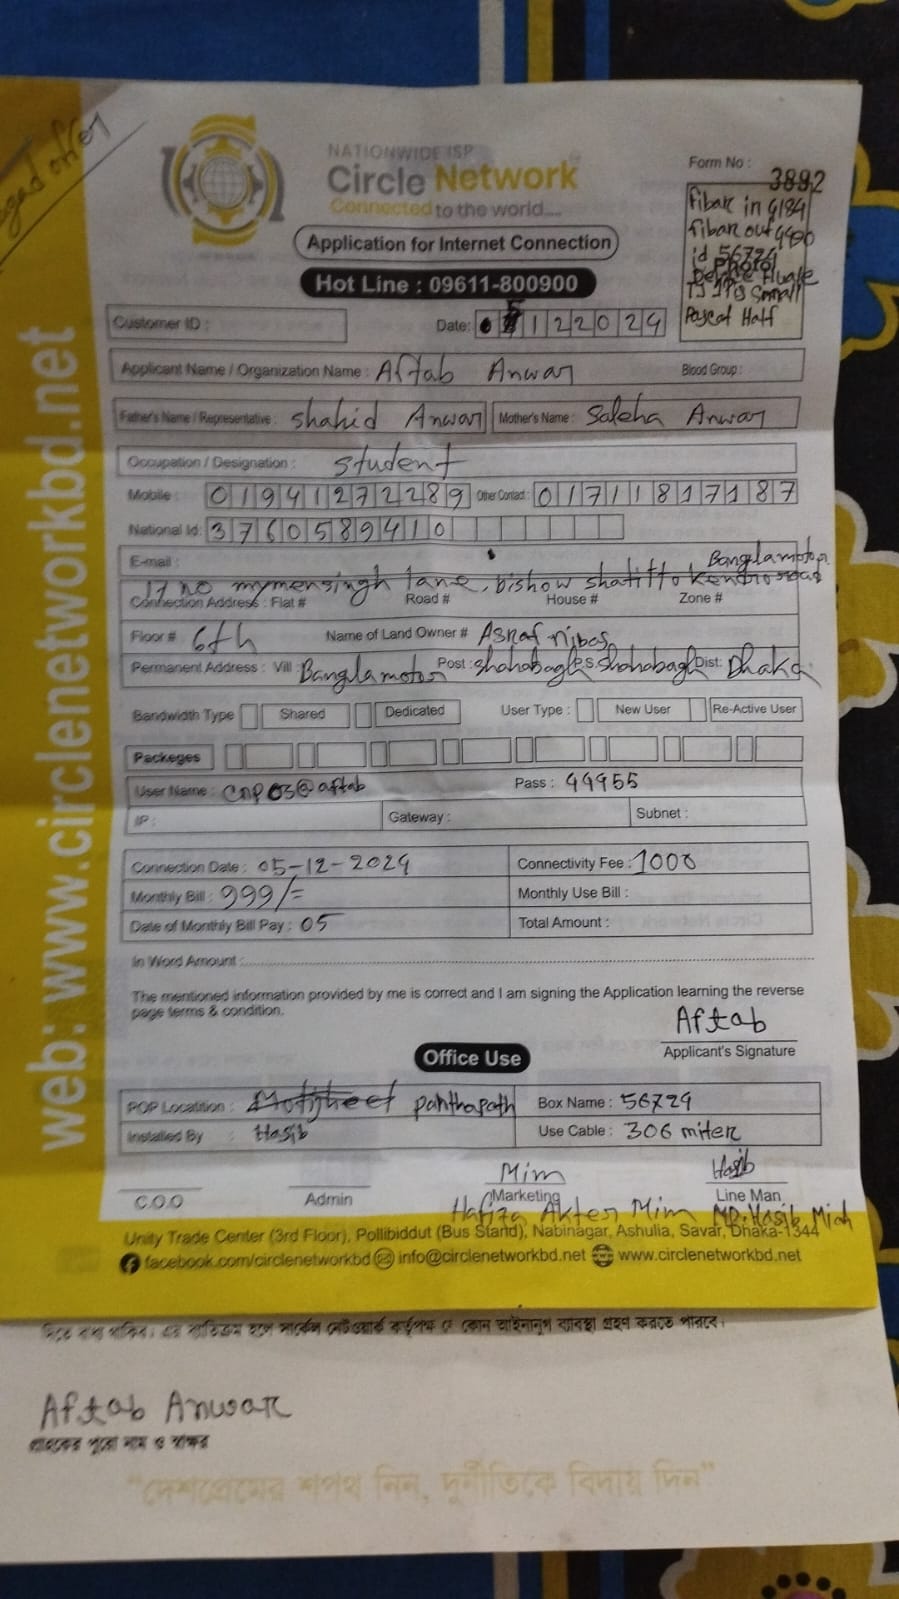 NATIONWIDE ISP
Circle Network
Connected to the world....
Application for Internet Connection
Hot Line : 09611-800900
Form No :
3892
Fibar in 9184
fibar out 9490
id 56724
Photo
TJ 1Pis Small
Pascat Half
offer
web: www.circlenetworkbd.net
Customer ID :
Date: 5 1 2 2 0 2 4
Applicant Name / Organization Name : Aftab Anwar Blood Group :
Father's Name / Representative : Shahid Anwar Mother's Name : Saleha Anwar
Occupation / Designation : Student
Mobile : 01941272289 Other Contact : 01711817187
National Id: 3760589410
E-mail :
Banglamotor
17 no mymensingh lane, bishow shahitto kendro road
Connection Address : Flat # Road # House # Zone #
Floor # 6th Name of Land Owner # Asraf nibas
Permanent Address : Vill Banglamotor Post : Shahabagh P.S Shahabagh Dist: Dhaka
Bandwidth Type Shared Dedicated User Type : New User Re-Active User
Packeges
User Name : cnp03@aftab Pass : 44955
IP : Gateway : Subnet :
Connection Date : 05-12-2024 Connectivity Fee : 1000
Monthly Bill : 999/= Monthly Use Bill :
Date of Monthly Bill Pay : 05 Total Amount :
In Word Amount :
The mentioned information provided by me is correct and I am signing the Application learning the reverse
page terms & condition.
Aftab
Applicant's Signature
Office Use
POP Locatition : Motijheel panthapath Box Name : 56724
Installed By : Hasib Use Cable : 306 miter
Mim Hasib
C.O.O Admin Marketing Line Man
Hafiza Akter Mim MD. Hasib Miah
Unity Trade Center (3rd Floor), Pollibiddut (Bus Stand), Nabinagar, Ashulia, Savar, Dhaka-1344
facebook.com/circlenetworkbd info@circlenetworkbd.net www.circlenetworkbd.net
দিতে বাধ্য থাকিব। এর ব্যতিক্রম হলে সার্কেল নেটওয়ার্ক কর্তৃপক্ষ যে কোন আইনানুগ ব্যবস্থা গ্রহণ করতে পারবে।
Aftab Anwar
গ্রাহকের পুরো নাম ও স্বাক্ষর
"দেশপ্রেমের শপথ নিন, দুর্নীতিকে বিদায় দিন"